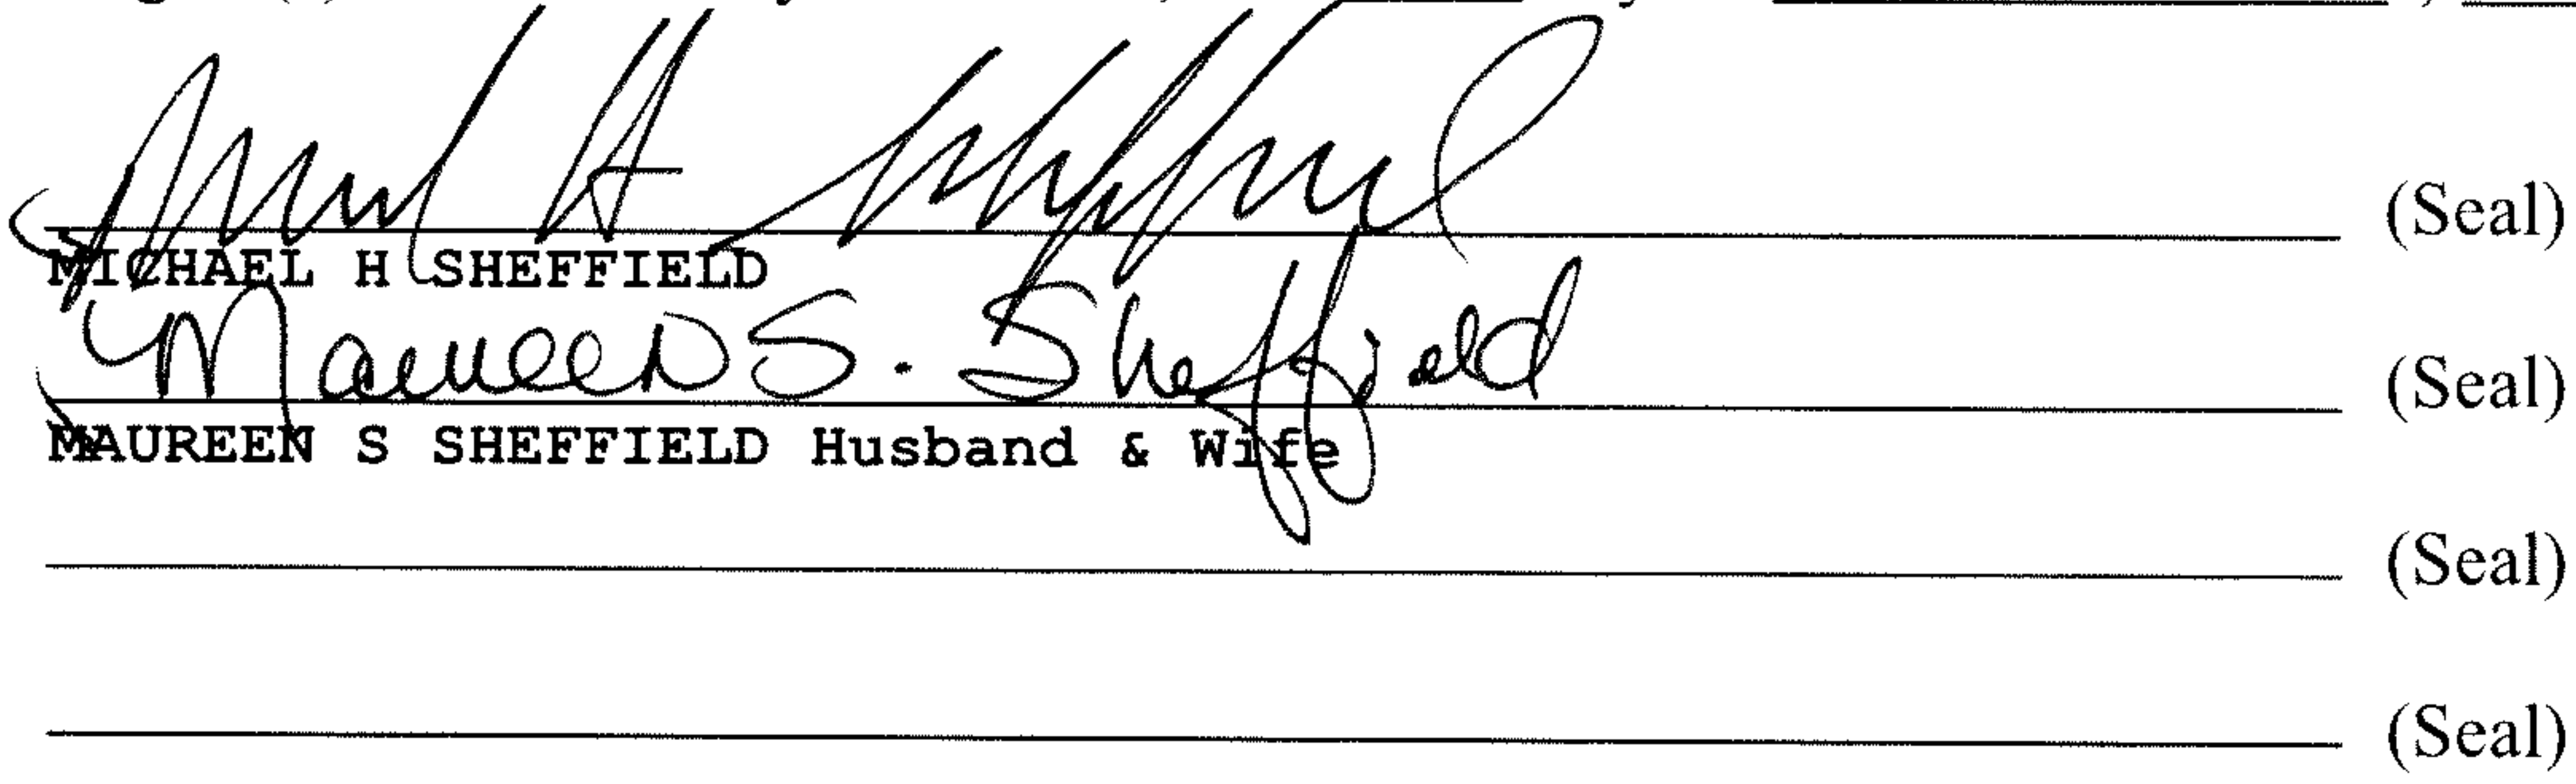 (Seal)
MICHAEL H SHEFFIELD
Maureen S. Sheffield (Seal)
MAUREEN S SHEFFIELD Husband & Wife
(Seal)
(Seal)